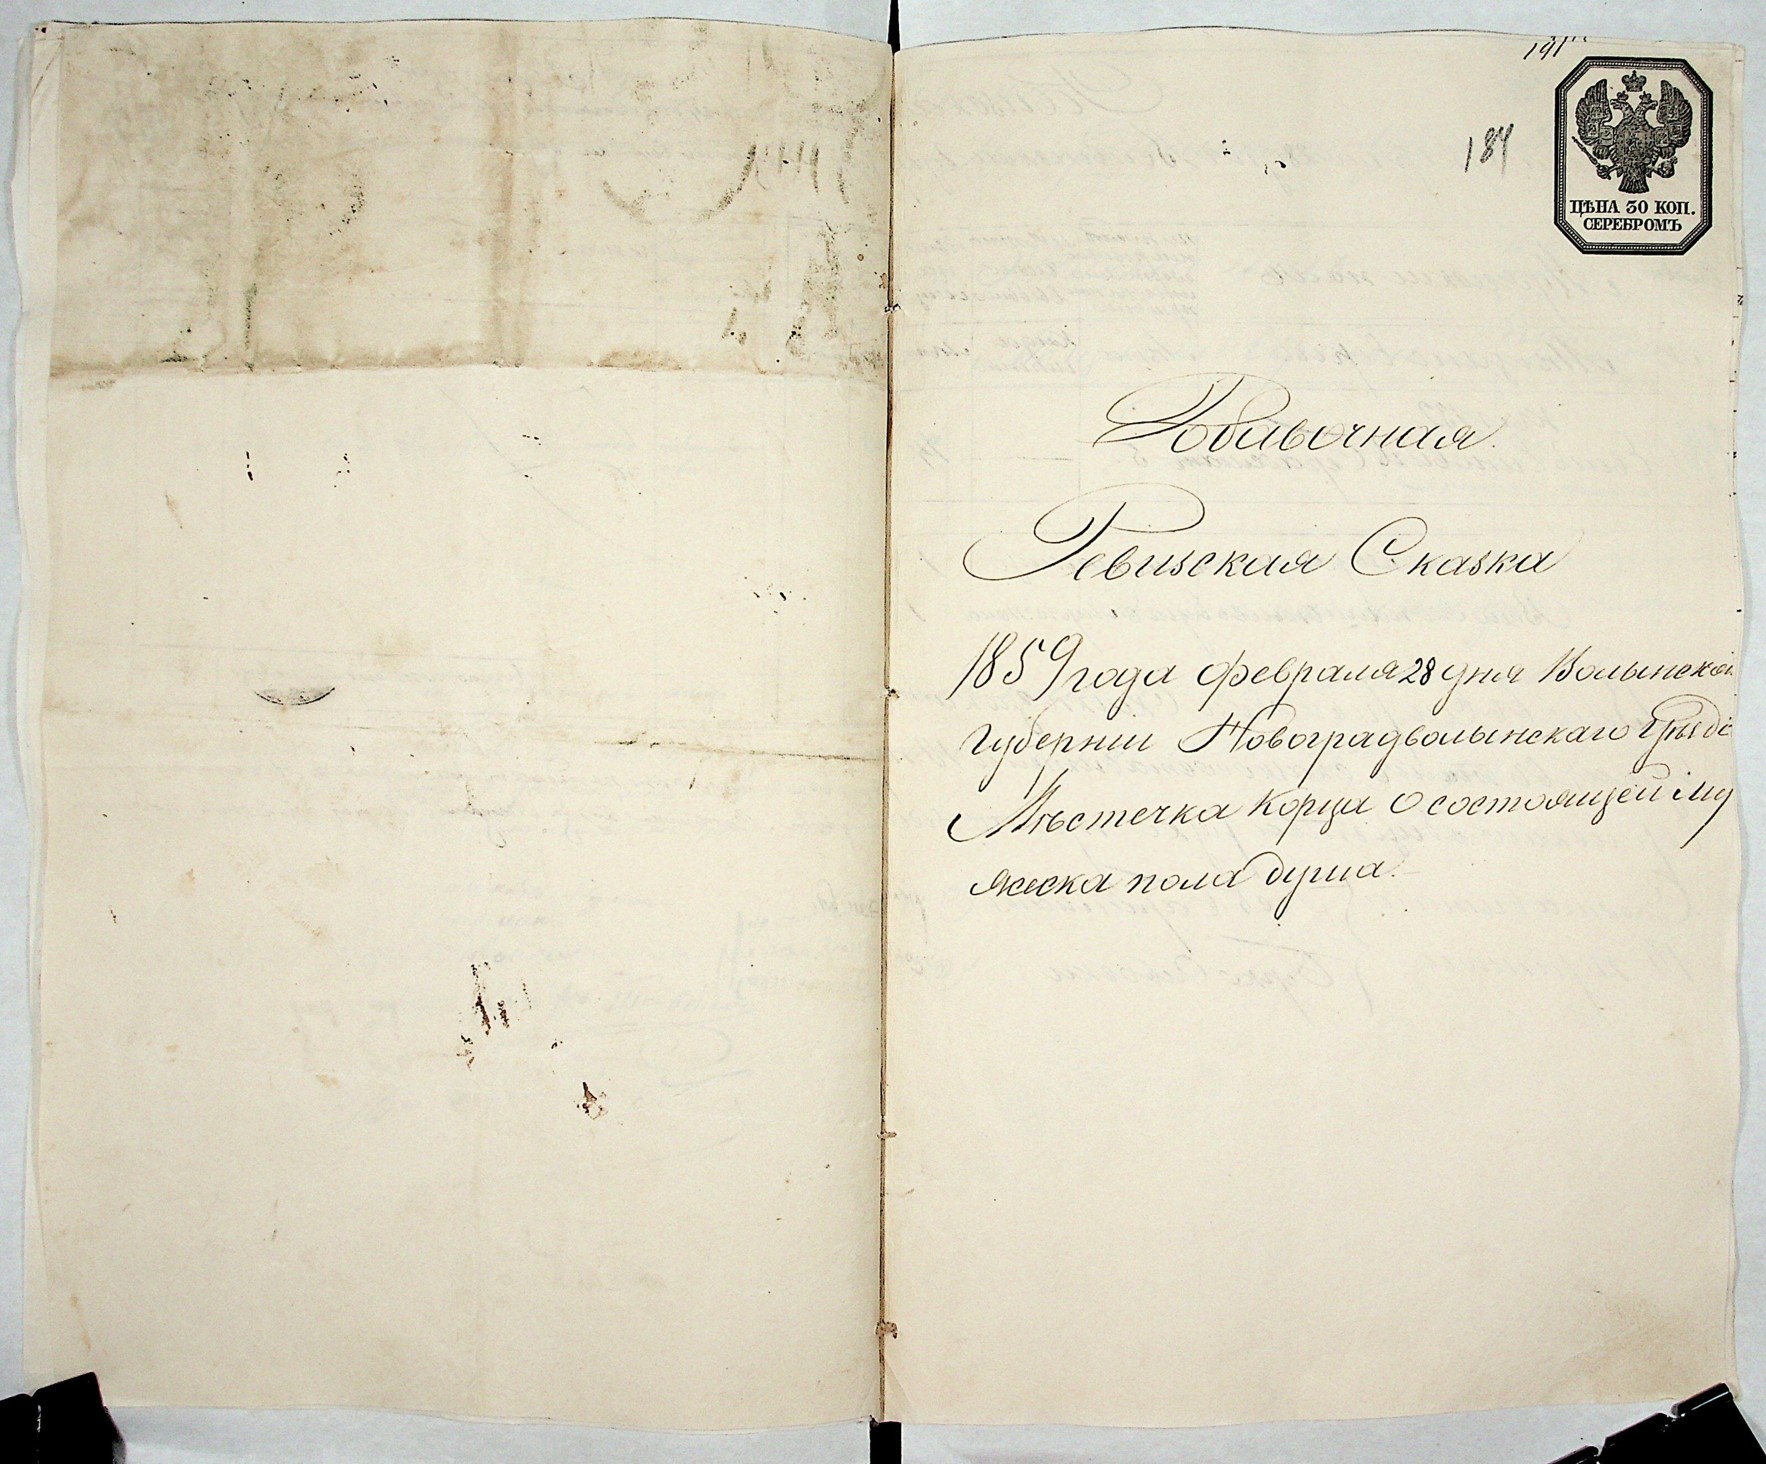 184
ЦѢНА 30 КОП.
СЕРЕБРОМЪ
Добавочная
Ревизская Сказка
1859 года февраля 28 дня Волынской
Губерніи Новоградволынскаго
Мѣстечка Корца О состоящей му
жеска пола душа.